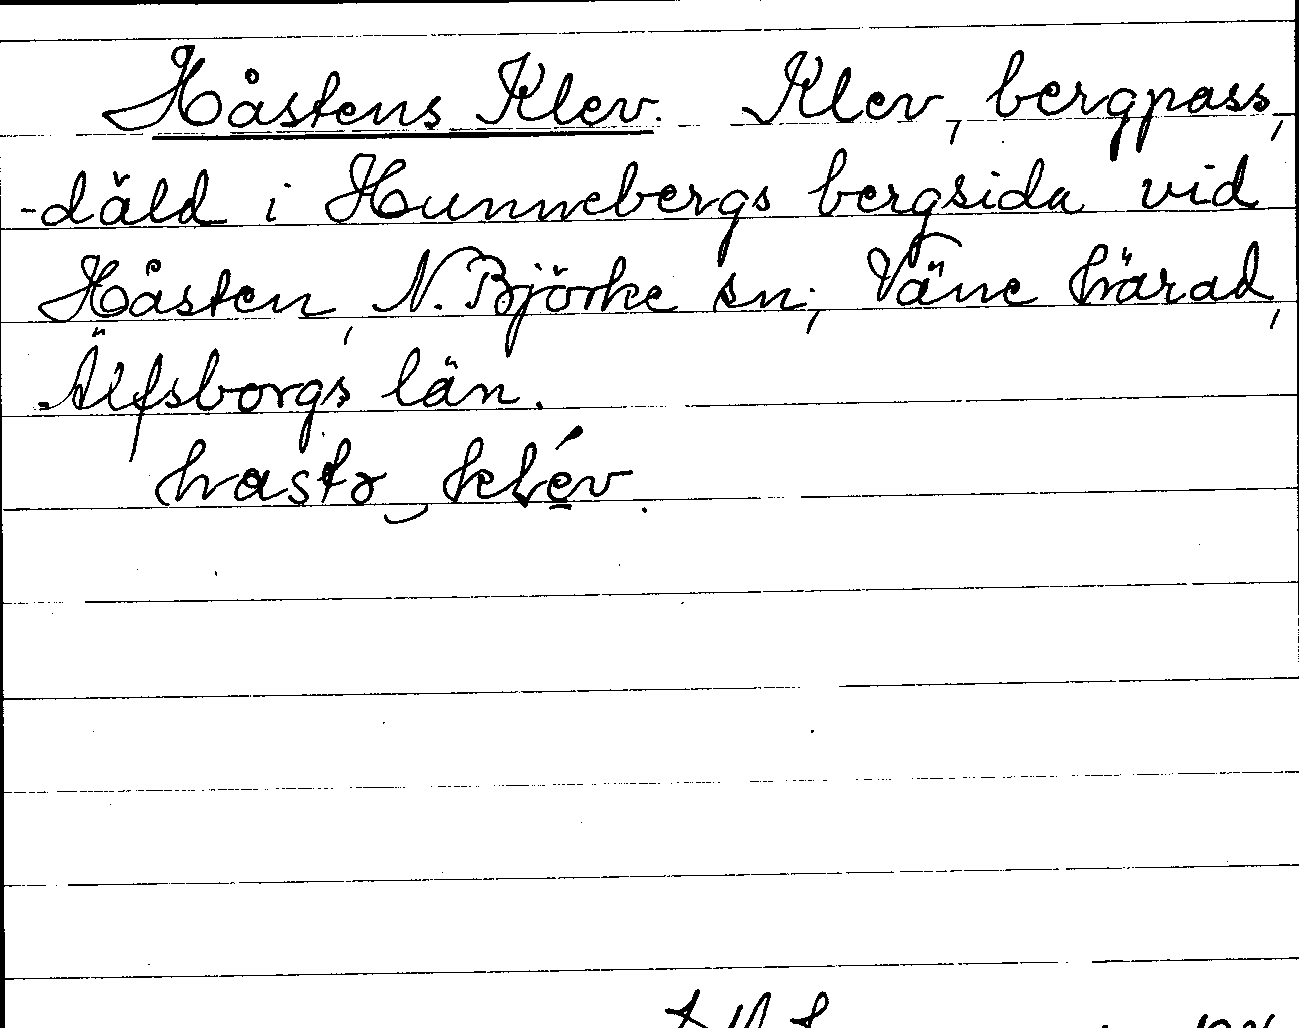 Håstens Klev. Klev, bergpass,
-däld i Hunnebergs bergsida vid
Håsten, N. Björke sn; Väne härad,
Älfsborgs län.
hastɤ‿klév.